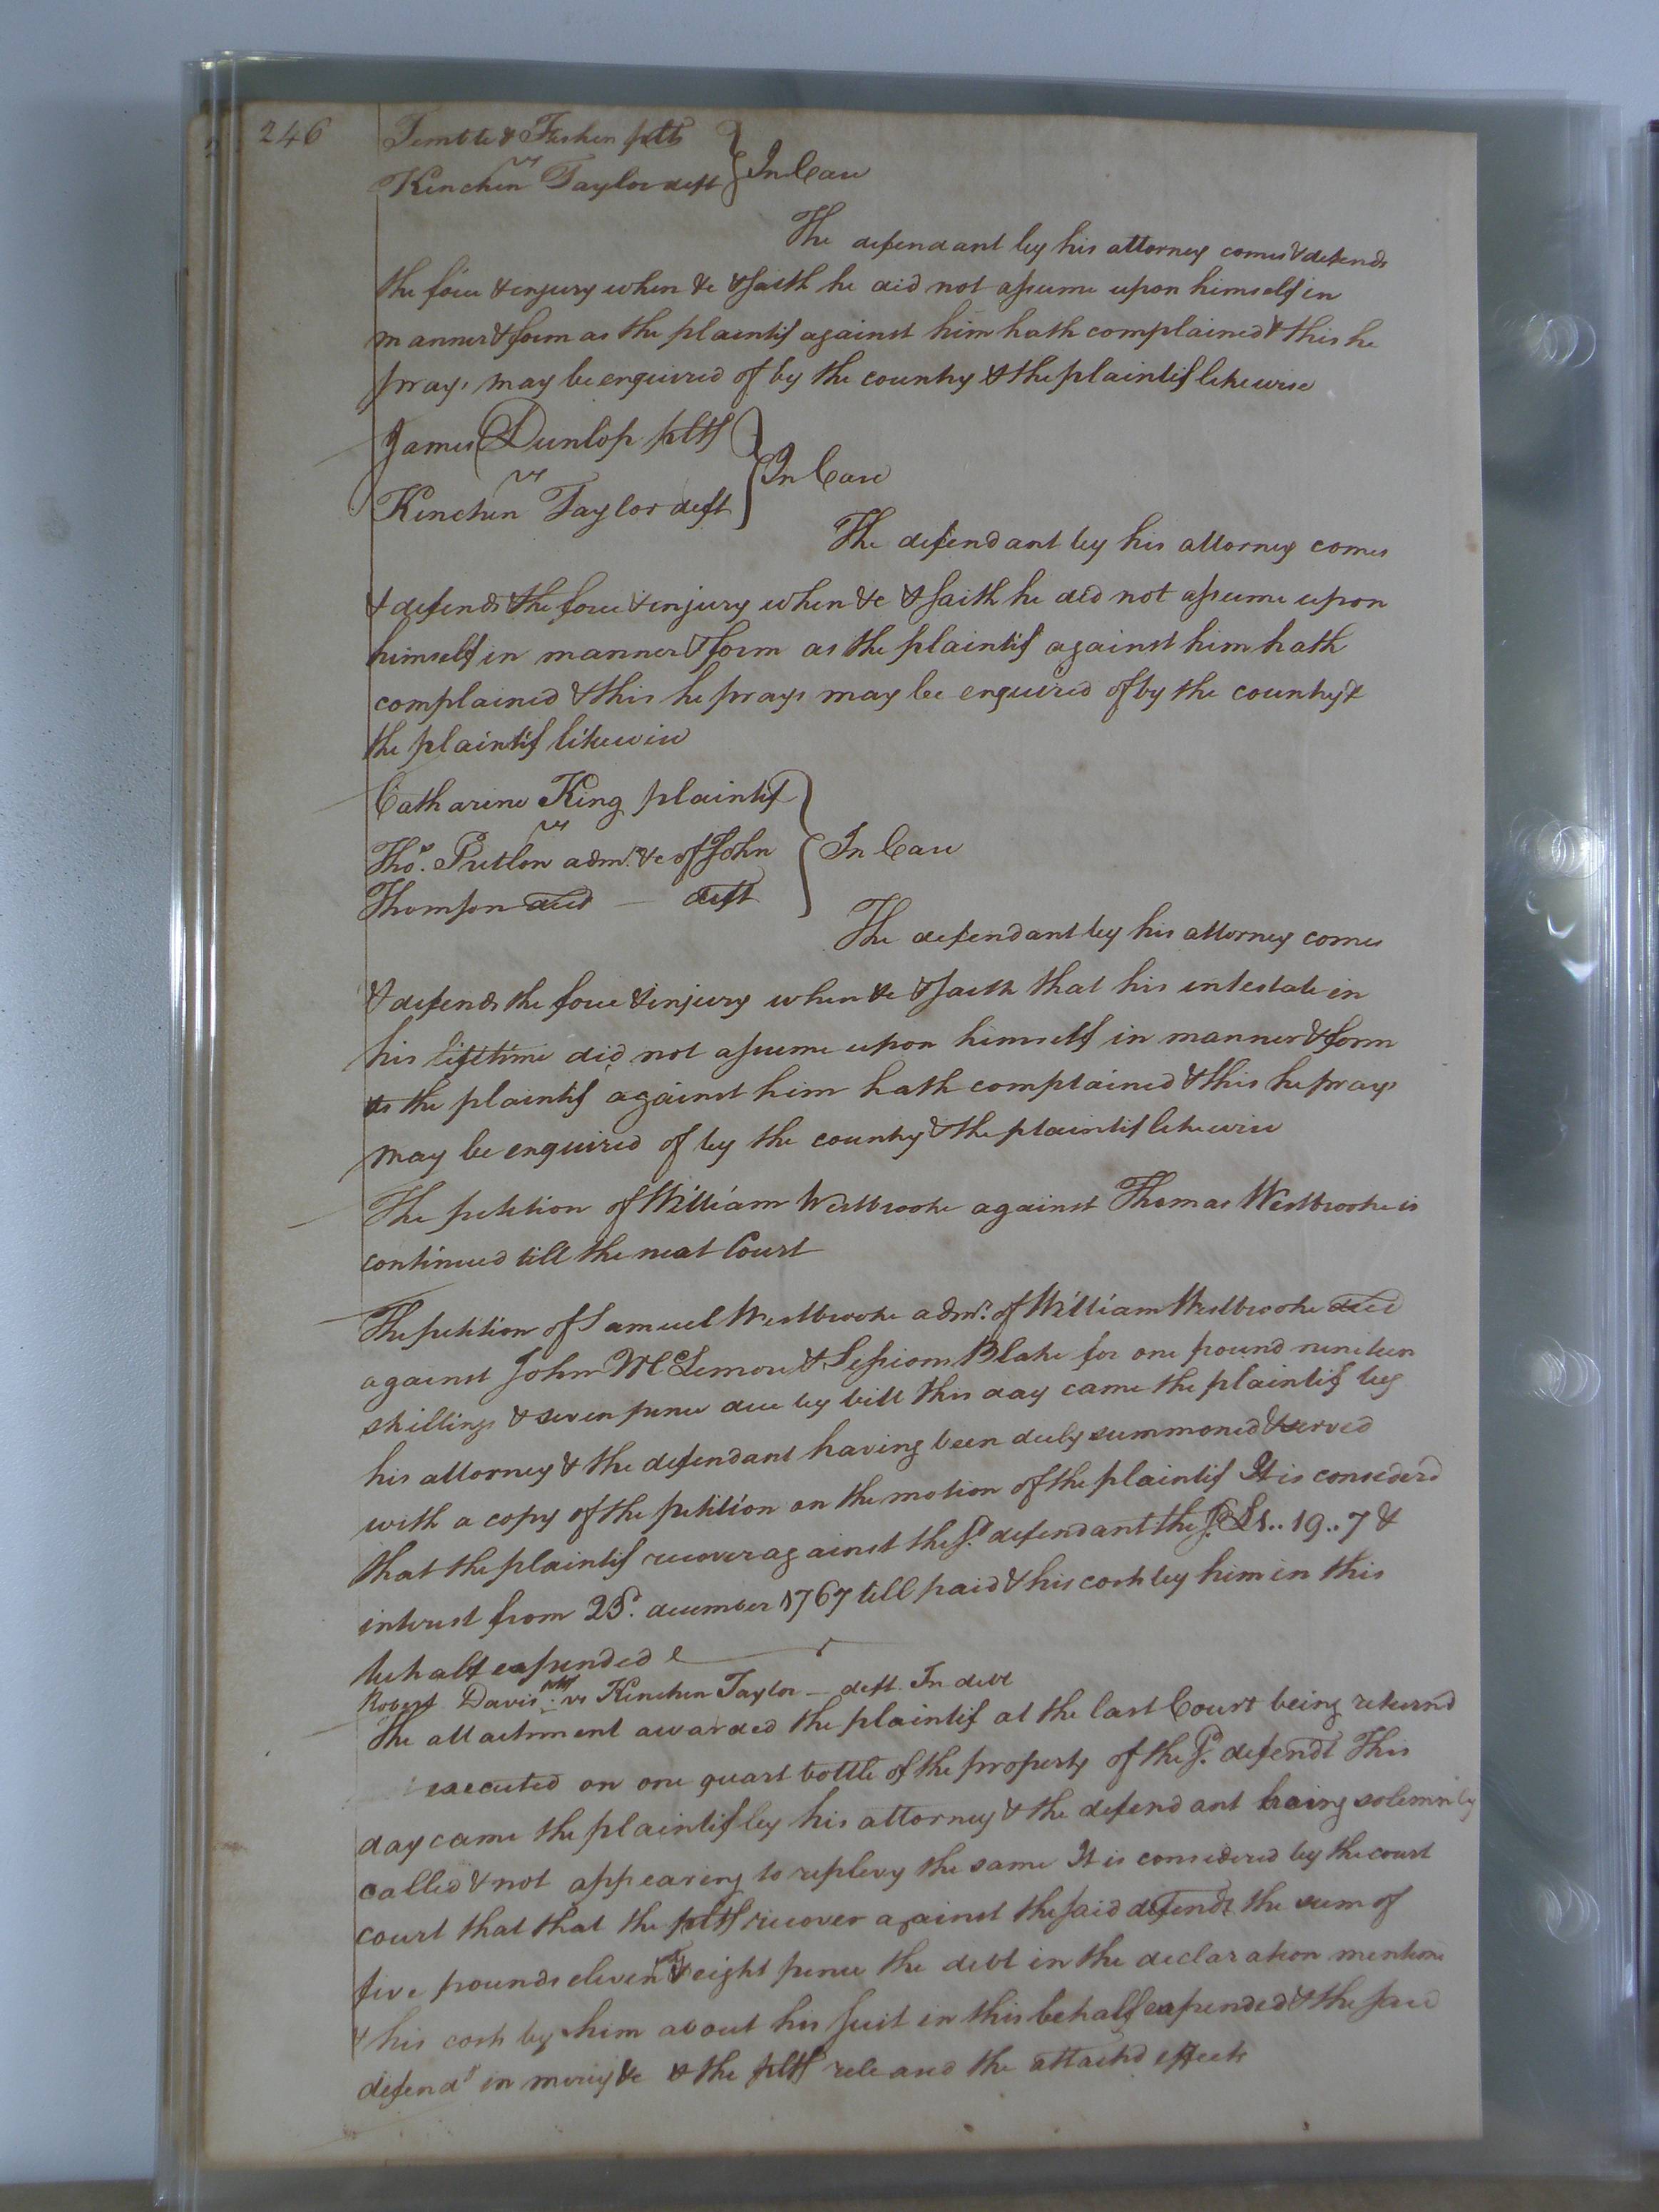 246
Temble & Fisher plts
vs
Kinchin Taylor deft } In Case
The defendant by his attorney comes & defends
the force & injury when &c & saith he did not assume upon himself in
manner & form as the plaintif against him hath complained & this he
prays may be enquired of by the country & the plaintif likewise
James Dunlop pltf
vs
Kinchin Taylor deft } In Case
The defendant by his attorney comes
& defends the force & injury when &c & saith he did not assume upon
himself in manner & form as the plaintif against him hath
complained & this he prays may be enquired of by the country &
the plaintif likewise
Catharine King plaintif
vs
Thos. Pretlow admr. &c of John } In Case
Thompson decd — deft
The defendant by his attorney comes
& defends the force & injury when &c & saith that his intestate in
his lifetime did not assume upon himself in manner & form
as the plaintif against him hath complained & this he prays
may be enquired of by the country & the plaintif likewise
The petition of William Westbrooke against Thomas Westbrooke is
continued till the next Court
The petition of Samuel Westbrooke admr. of William Westbrooke decd
against John McLemore & Sessions Blake for one pound nineteen
shillings & seven pence due by bill this day came the plaintif by
his attorney & the defendant having been duly summoned & served
with a copy of the petition on the motion of the plaintif It is considerd
that the plaintif recover against the sd. defendant the sd. £1..19..7 &
intrust from 25. december 1767 till paid & his costs by him in this
behalf expended
Robert Davis pltf vs Kinchen Taylor — deft. In debt
The attachment awarded the plaintif at the last Court being returnd
executed on one quart bottle of the property of the sd. defendt This
day came the plaintif by his attorney & the defendant being solemnly
called & not appearing to replevy the same It is considered by the court
court that that the pltf recover against the said defendt the sum of
five pounds eleven & eight pence the debt in the declaration mentione
& his costs by him about his suit in this behalf expended & the said
defendt in mercy &c & the pltf released the attachd effects